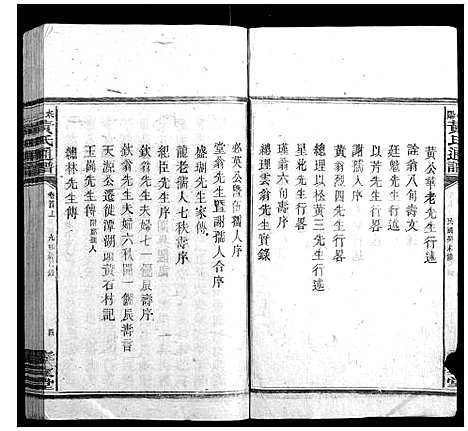 黃氏通譜
黃公華老先生行述
詮翁八旬壽文
廷魁先生行畧
以芳先生行畧
謝孺人行述
黃翁烈四先生行畧
總理以松黃三先生行畧
星若先生行畧
瑾翁六旬壽序
總理雲翁先生實錄
必英公暨伍孺人合序
堂翁先生暨謝孺人合序
盛瑚先生家傳
龍老孺人七秩壽序
紀臣先生序
欽翁先生夫婦七一偃辰壽序
欽翁先生夫婦六秩開一偃辰壽言
天源公遷徙潭湖頭黃石村記
王崗先生傳
總林先生傳
黃氏通譜
卷首上
四